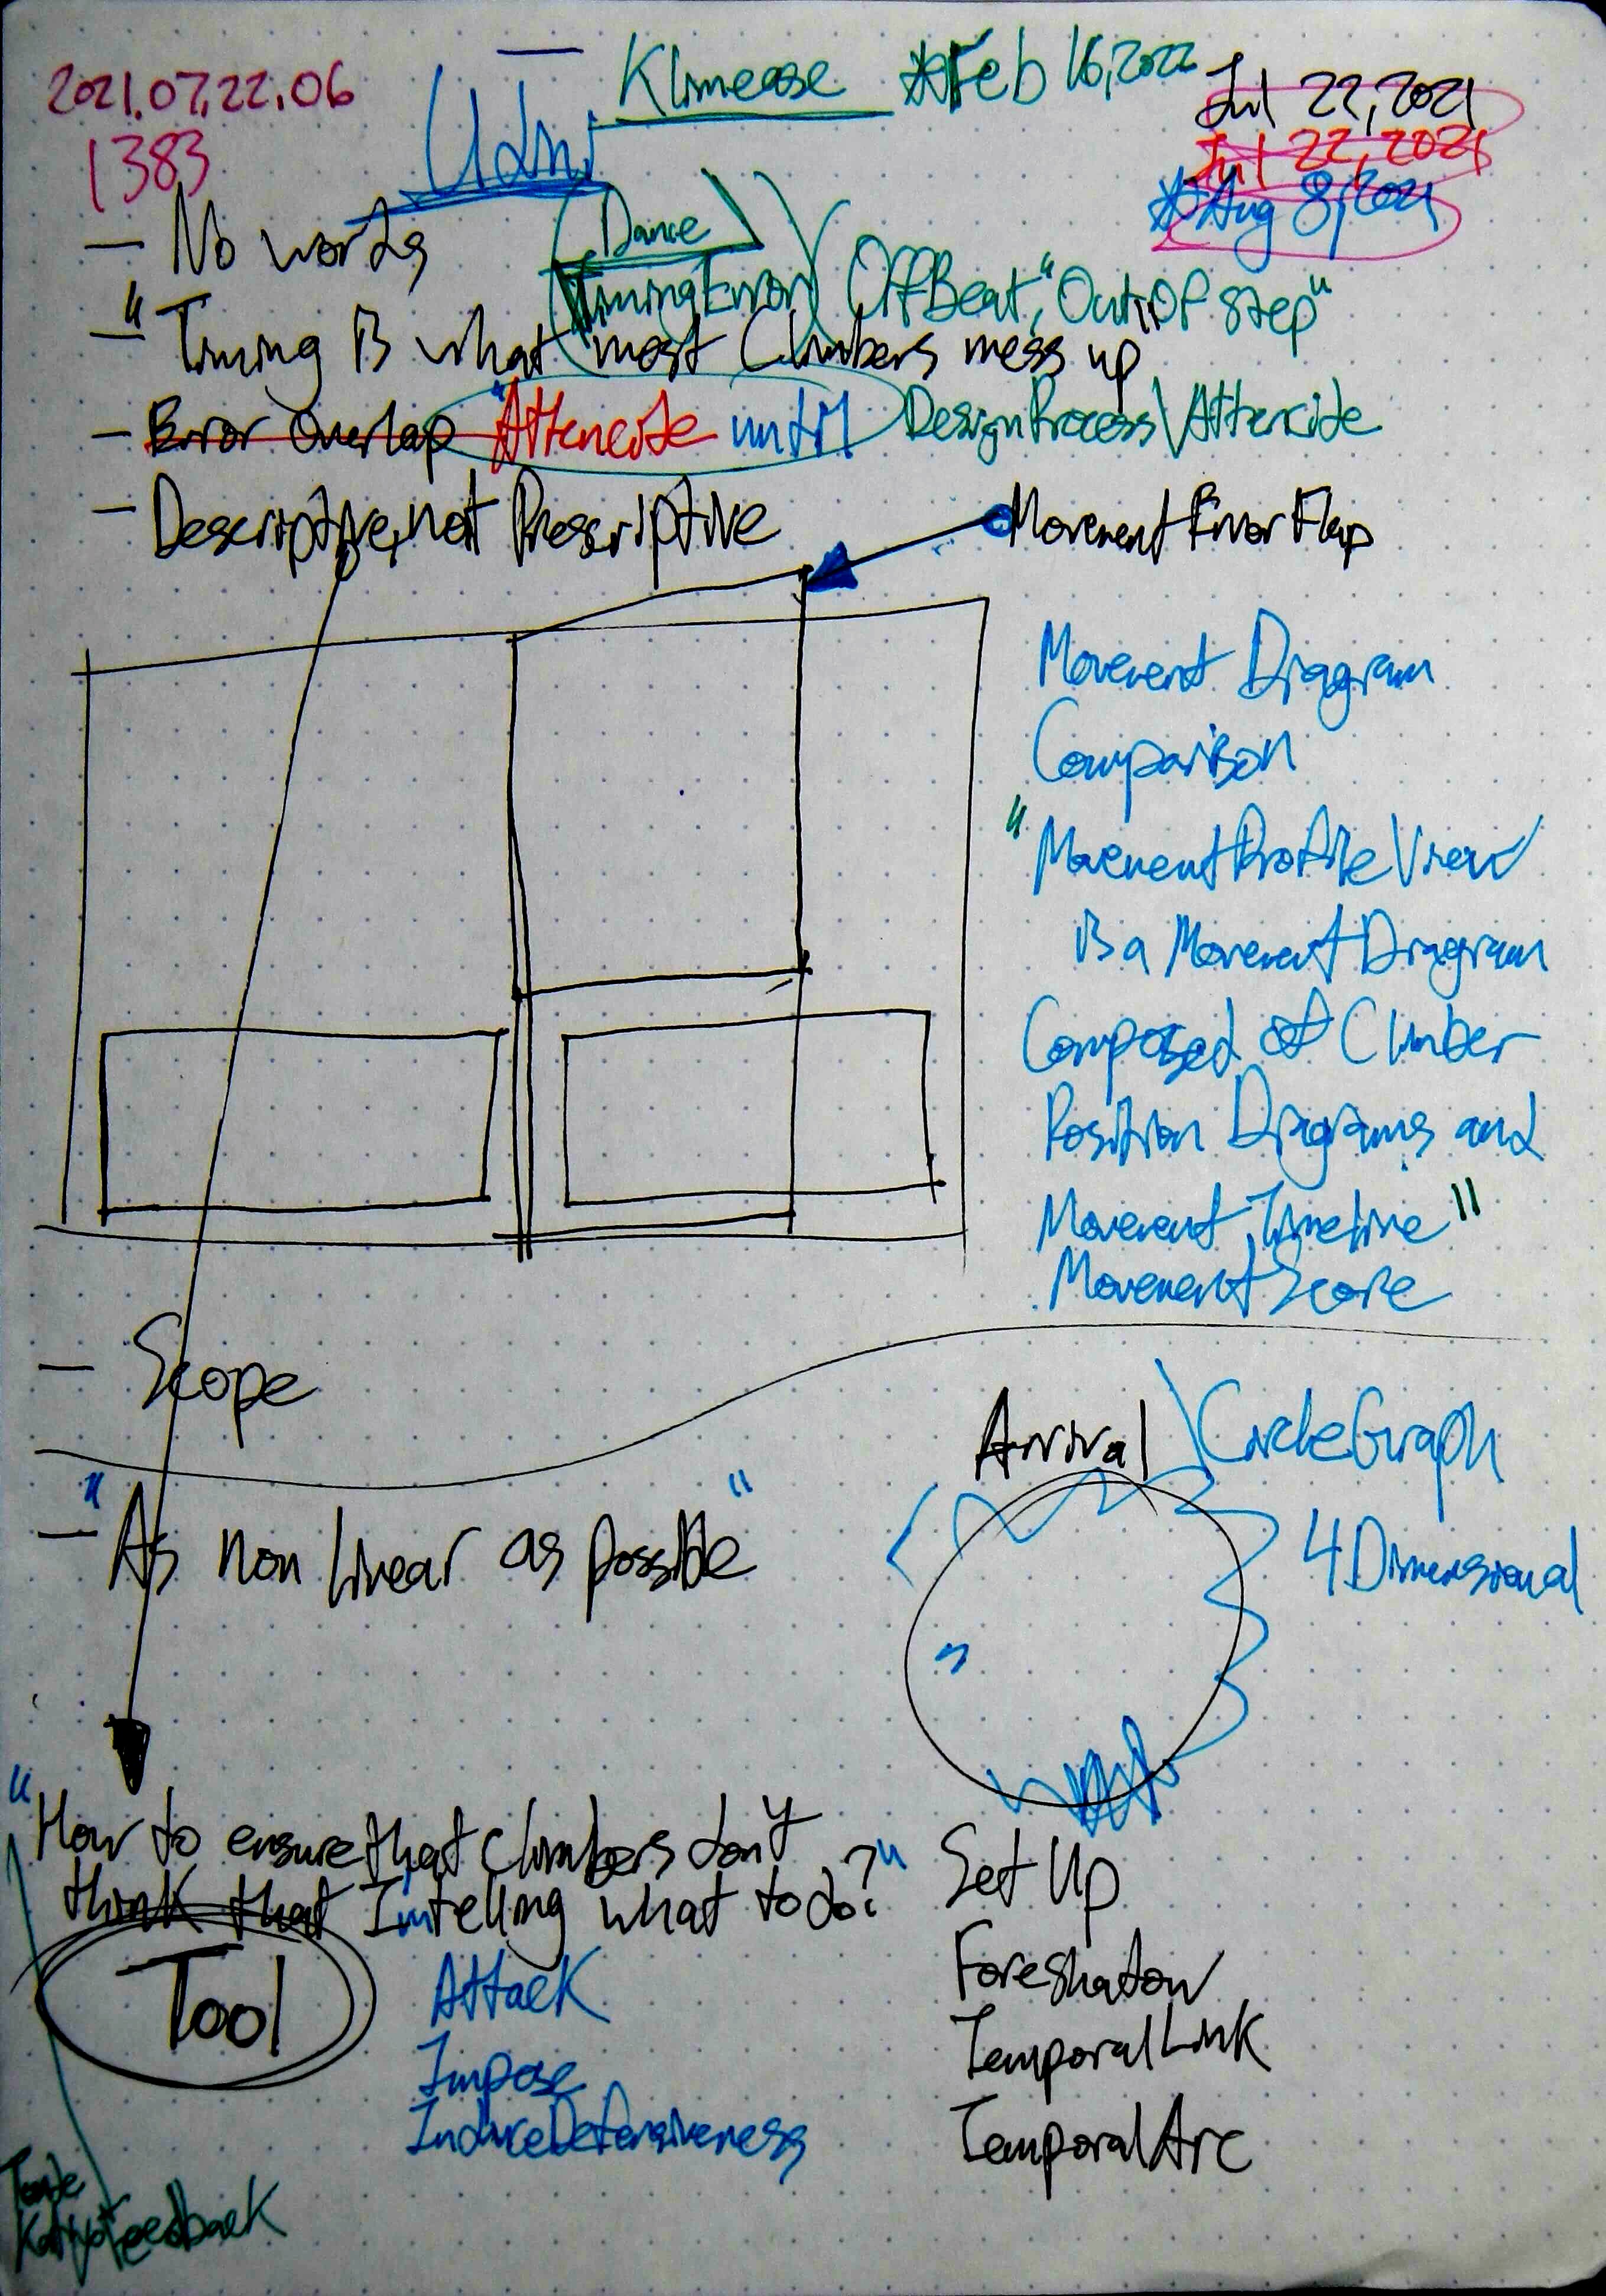 2021.07.22.06
1383
Klimease
Feb 16, 2022
Jul 22, 2021
Jul 22, 2021
Aug 8, 2021
— No words
Dance
TimingError
OffBeat, "Out Of step"
— "Timing is what most Climbers mess up
— Error Overlap "Attencide until
DesignProcess\Attencide
— Descriptive, not Prescriptive
MovementErrorFlap
Movement Diagram
Comparison
"MovementProfileView
is a MovementDiagram
Composed of Climber
Position Diagrams and
Movement Timeline"
MovementScore
— Scope
Arrival \CircleGraph
4Dimensional
— "As non linear as possible"
"How to ensure that climbers don't
think that Im telling what to do?"
Tool
Attack
Impose
InduceDefensiveness
Set Up
Foreshadow
TemporalLink
TemporalArc
Feedback